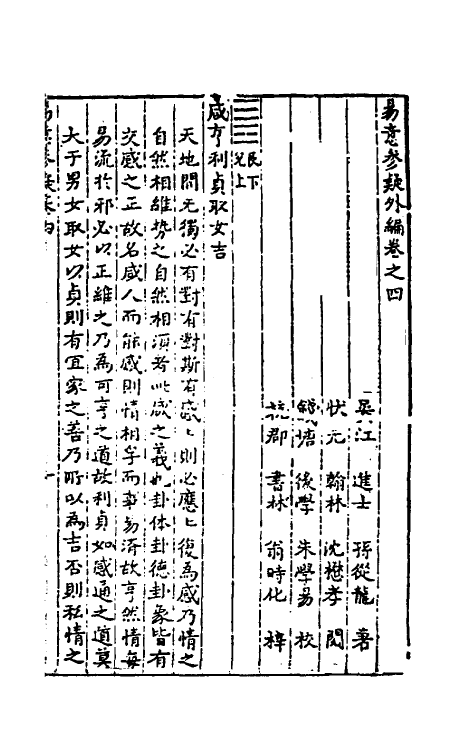 易意參疑外編卷之四
吳江 進士 孫從龍 著
狀元 翰林 沈懋孝 閱
錢塘 後學 朱學易 校
杭郡 書林 翁時化 梓
艮下
兌上
咸亨利貞取女吉
天地間无獨必有對有對斯有感二則必應二復為感乃情之
自然相維勢之自然相須者此咸之義也卦体卦德卦象皆有
交感之正故名咸人而能感則情相孚而事易濟故亨然情每
易流於邪必以正維之乃為可亨之道故利貞如感通之道莫
大于男女取女以貞則有宜家之善乃所以為吉否則私情之